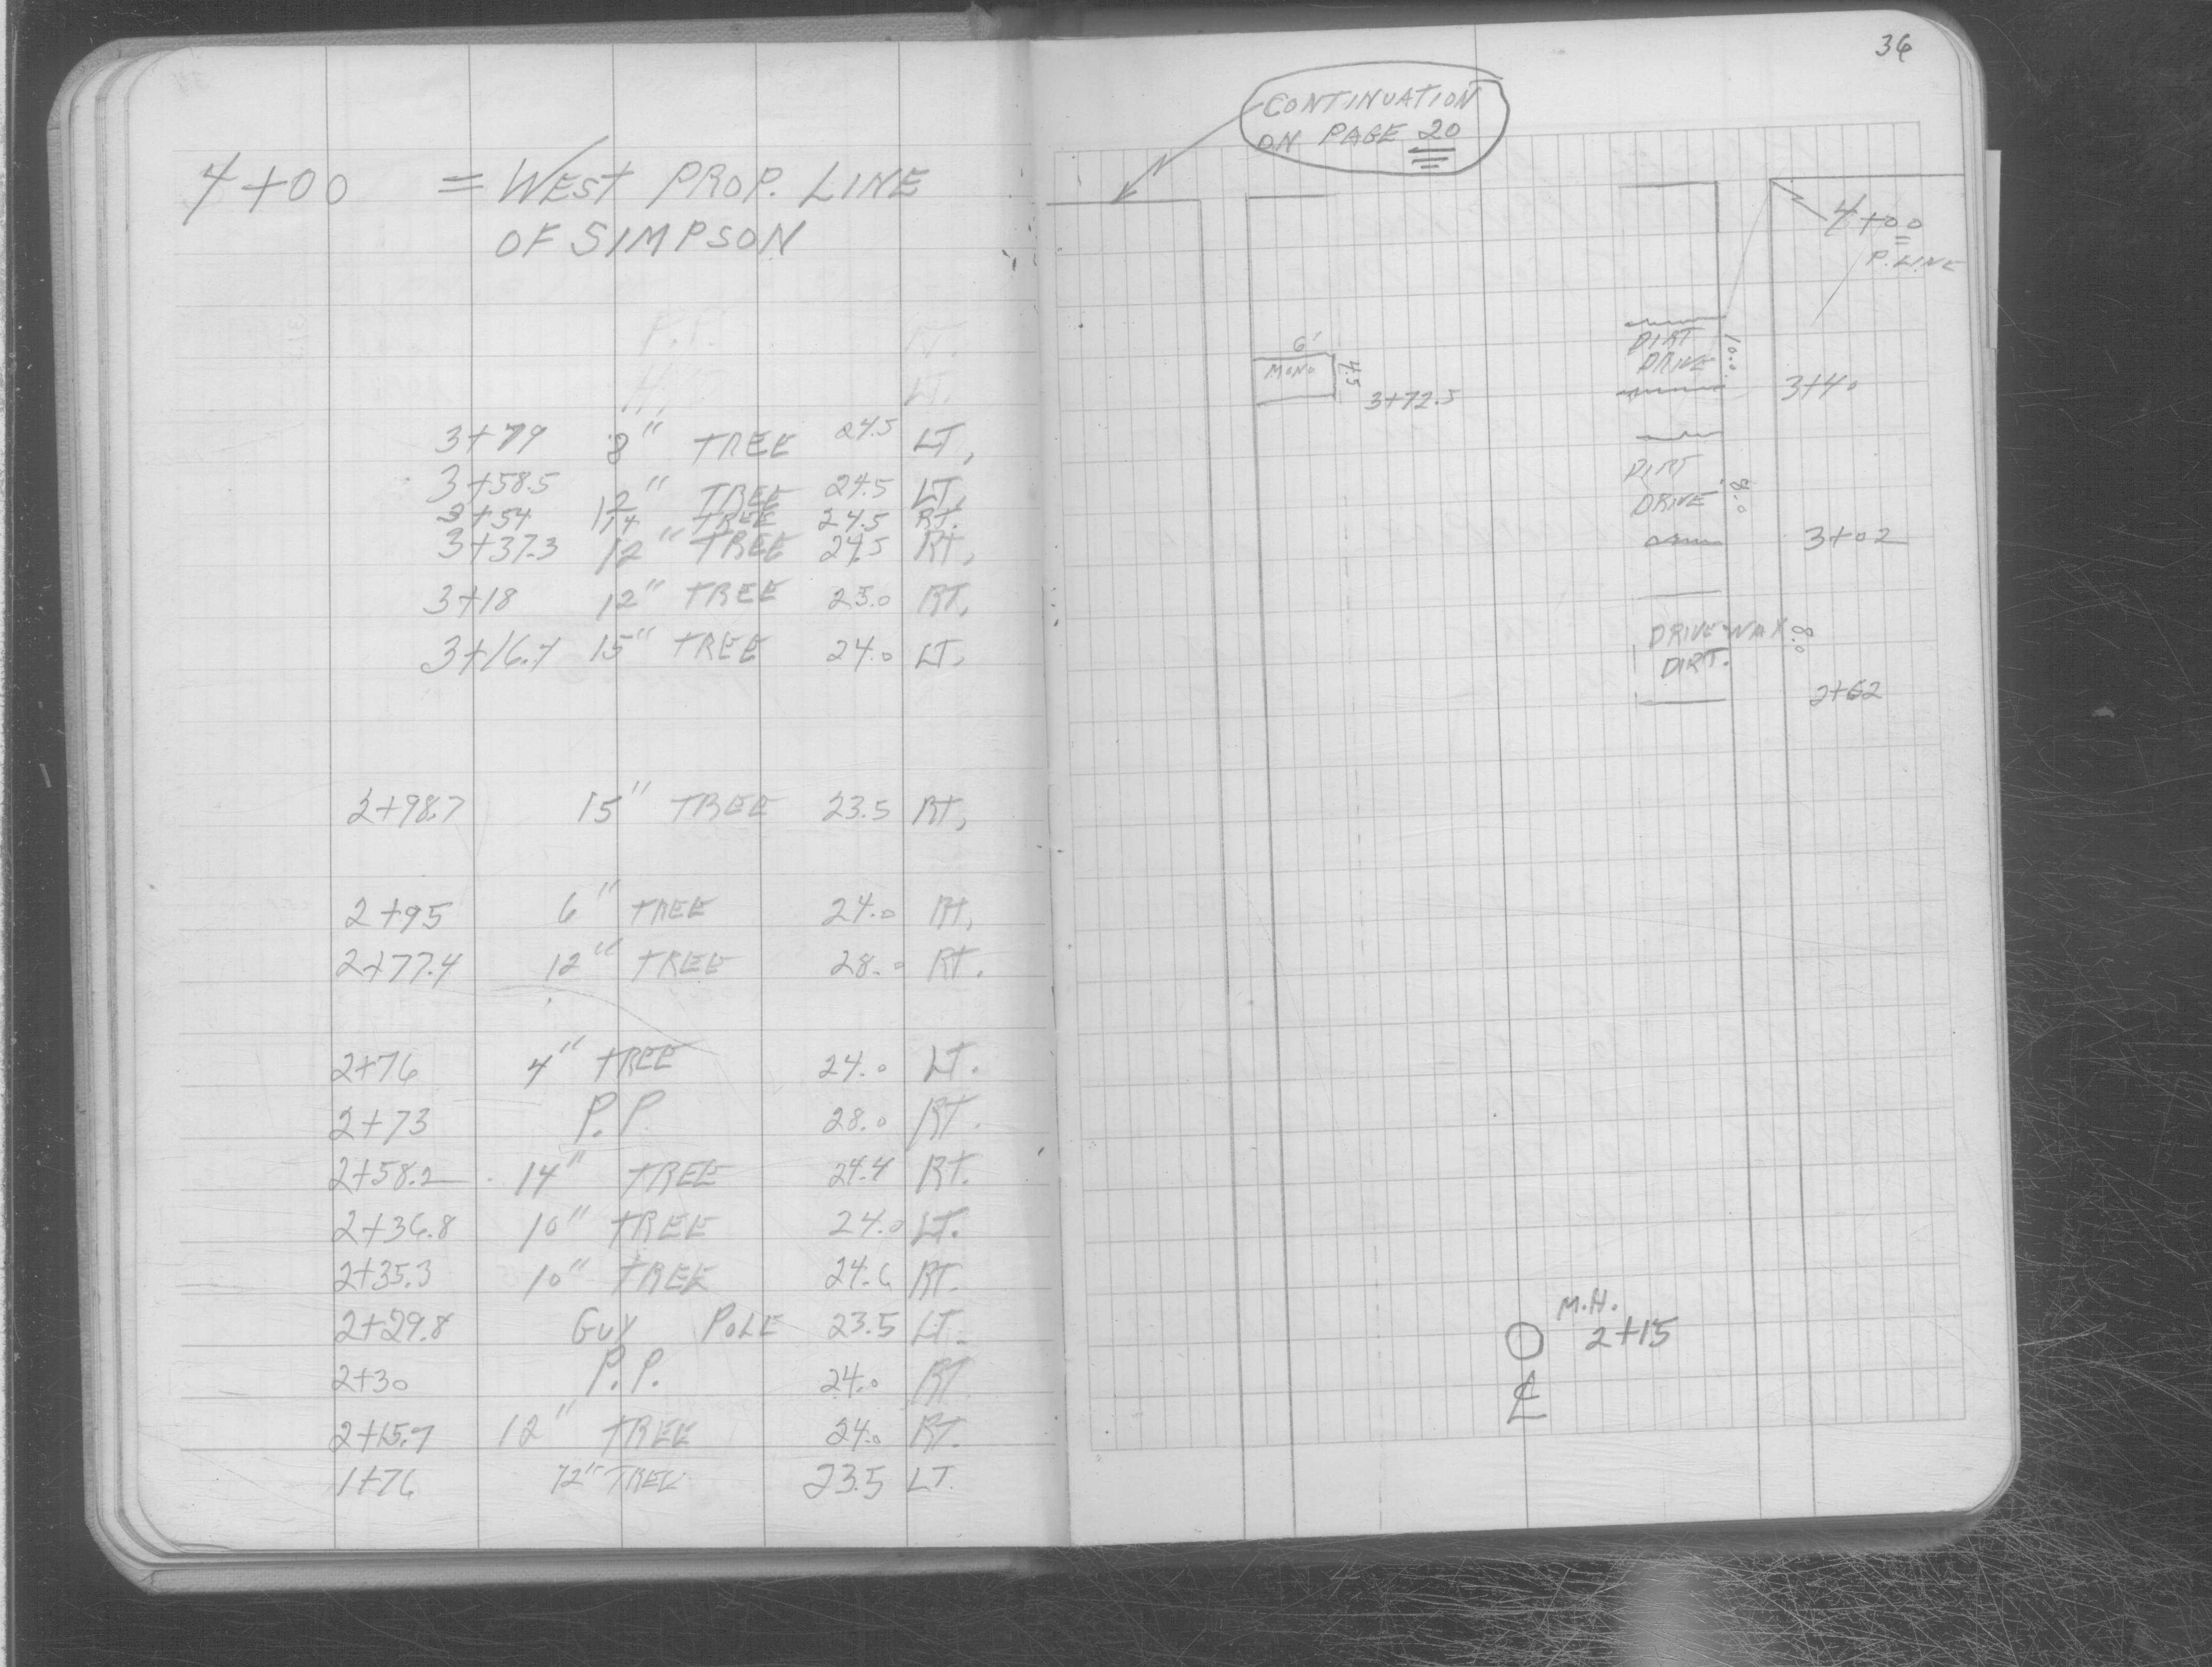 4+00 = WEST PROP. LINE
OF SIMPSON
P.P.
LT.
3+79 8" TREE 24.5 LT,
3+58.5 12" TREE 24.5 LT,
3+54 14 TREE 24.5 RT.
3+37.3 12" TREE 24.5 RT,
3+18 12" TREE 25.0 RT,
3+16.7 15" TREE 24.0 LT,
2+98.7 15" TREE 23.5 RT,
2+95 6" TREE 24.0 RT,
2+77.4 12" TREE 28.0 RT.
2+76 4" TREE 24.0 LT.
2+73 P.P. 28.0 RT.
2+58.2 14" TREE 24.4 RT.
2+36.8 10" TREE 24.0 LT.
2+35.3 10" TREE 24.6 RT.
2+29.8 GUY POLE 23.5 LT.
2+30 P.P. 24.0 RT.
2+15.7 12" TREE 24.0 RT.
1+76 12" TREE 23.5 LT.
36
CONTINUATION
ON PAGE 20
4+00
=
P. LINE
6'
MONO 4.5
3+72.5
DIRT
DRIVE 10.0
3+40
DIRT
DRIVE 8.0
3+02
DRIVEWAY 8.0
DIRT.
2+62
M.H.
2+15
℄